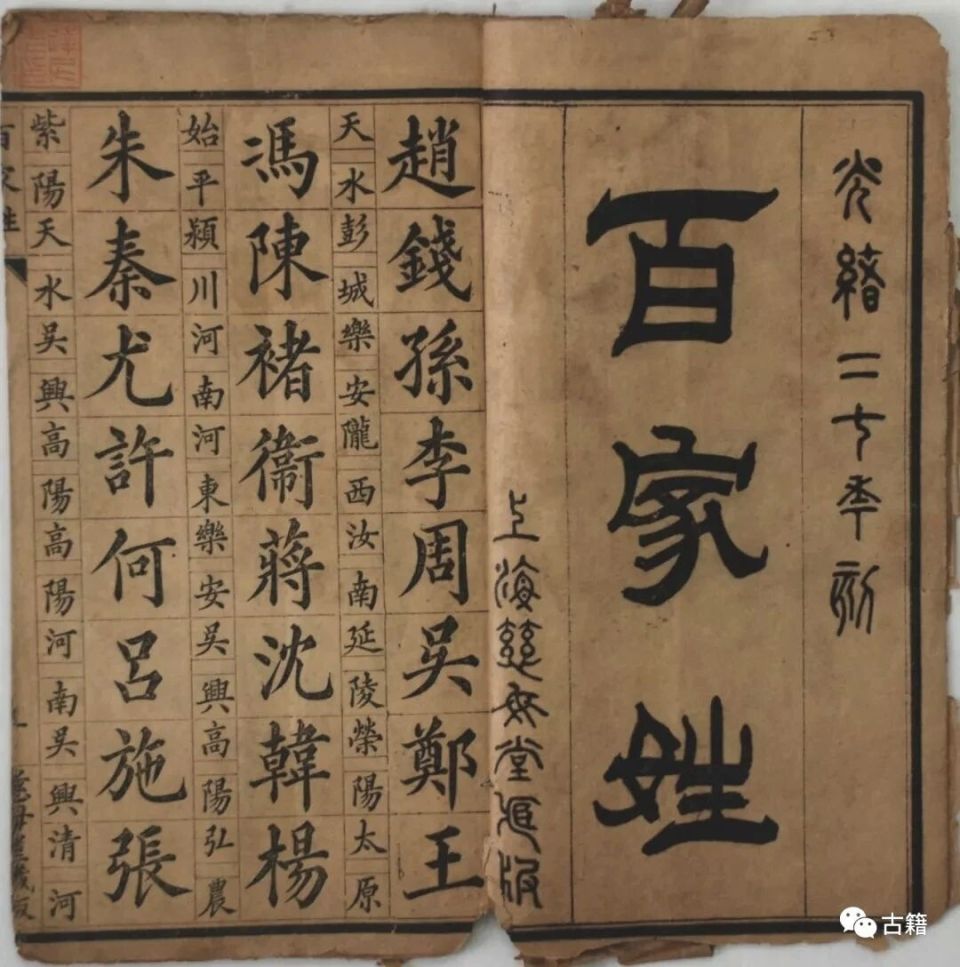 光緒二七年刻
百家姓
上海慈母堂藏版
趙錢孫李周吳鄭王
天水彭城樂安隴西汝南延陵榮陽太原
馮陳褚衛蔣沈韓楊
始平潁川河南河東樂安吳興高陽弘農
朱秦尤許何呂施張
紫陽天水吳興高陽高陽河南吳興清河
百家姓
慈母堂藏版
古籍